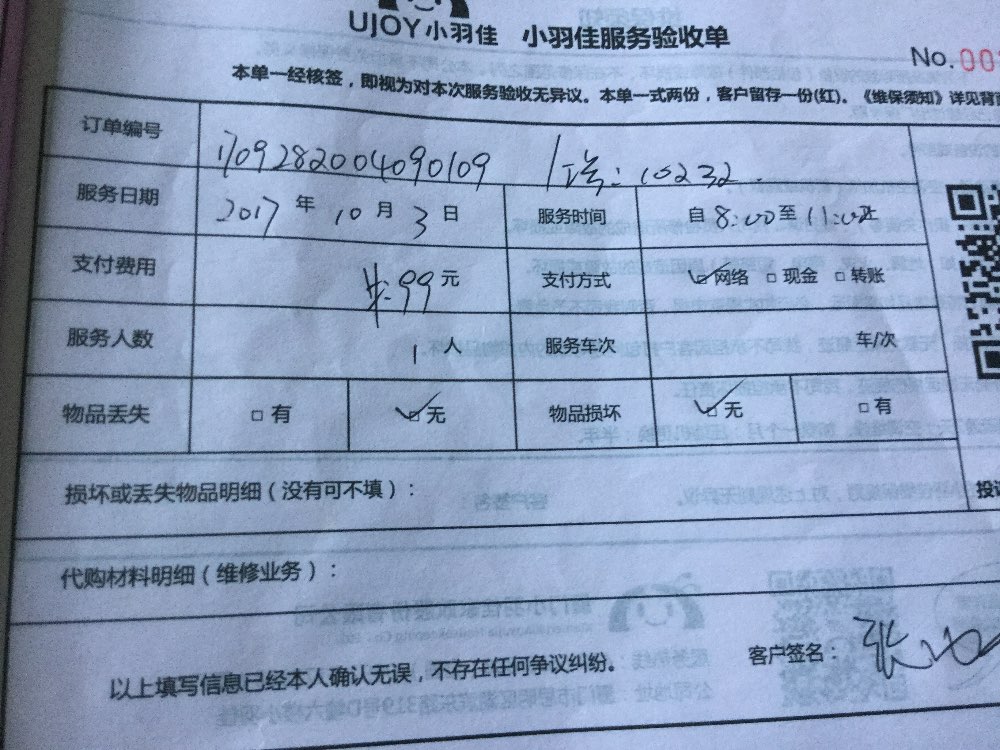 UJOY小羽佳 小羽佳服务验收单
No.00
本单一经核签，即视为对本次服务验收无异议。本单一式两份，客户留存一份(红)。《维保须知》详见背
订单编号 1709282004090109 工号：10232
服务日期 2017 年 10 月 3 日 服务时间 自 8:00 至 11:00 止
支付费用 99 元 支付方式 网络 现金 转账
服务人数 1 人 服务车次 车/次
物品丢失 有 无 物品损坏 无 有
损坏或丢失物品明细（没有可不填）：
代购材料明细（维修业务）：
以上填写信息已经本人确认无误，不存在任何争议纠纷。
客户签名： 张